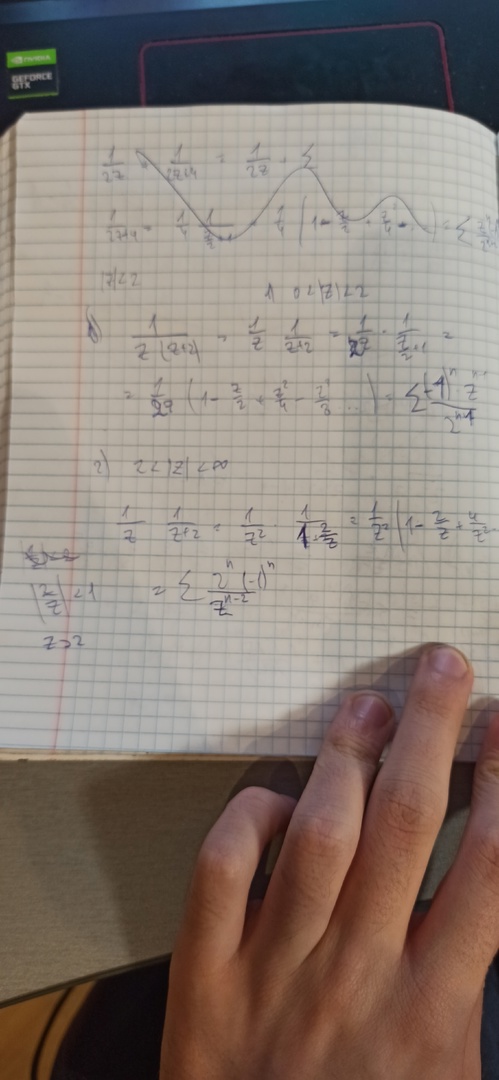 NVIDIA
GEFORCE
GTX
1/(2z) - 1/(2z+4) = 1/(2z) - Σ
1/(2z+4) = 1/4 · 1/(z/2+1) = 1/4 (1 - z/2 + z²/4 - ) = Σ
|z|<2
1) 0<|z|<2
1/(z(z+2)) = 1/z · 1/(z+2) = 1/(2z) · 1/(z/2+1) =
= (1 - z/2 + z²/4 - z³/8 ...) = Σ (-1)ⁿ zⁿ⁻¹/2ⁿ⁺¹
2) 2<|z|<∞
1/z · 1/(z+2) = 1/z² · 1/(1+2/z) = 1/z² (1 - 2/z + 4/z²
|2/z| <1
= Σ 2ⁿ(-1)ⁿ/zⁿ⁻²
z>2